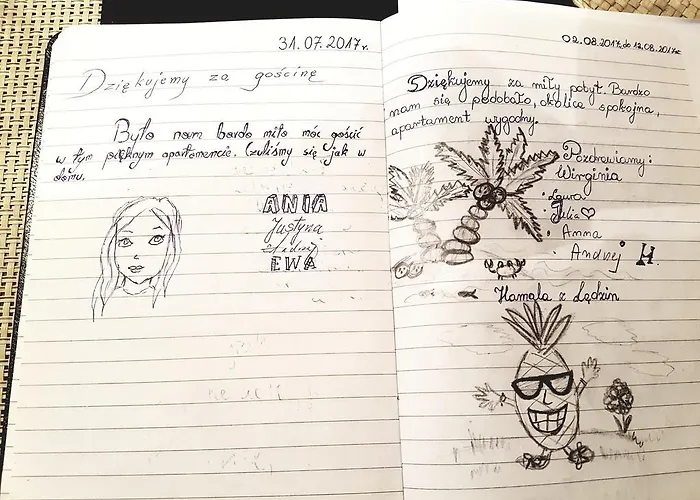 31.07.2017r.
Dziękujemy za gościnę
Było nam bardo miło móc gościć
w tym pięknym apartamencie. Czuliśmy się jak w
domu.
ANIA
Justyna
EWA
02.08.2017 do 12.08.2017r.
Dziękujemy za miły pobyt. Bardzo
nam się podobało, okolica spokojna,
apartament wygodny.
Pozdrawiamy:
Wirginia
Laura
Julia♡
Anna
Andrzej H.
Hamala z Lędzin